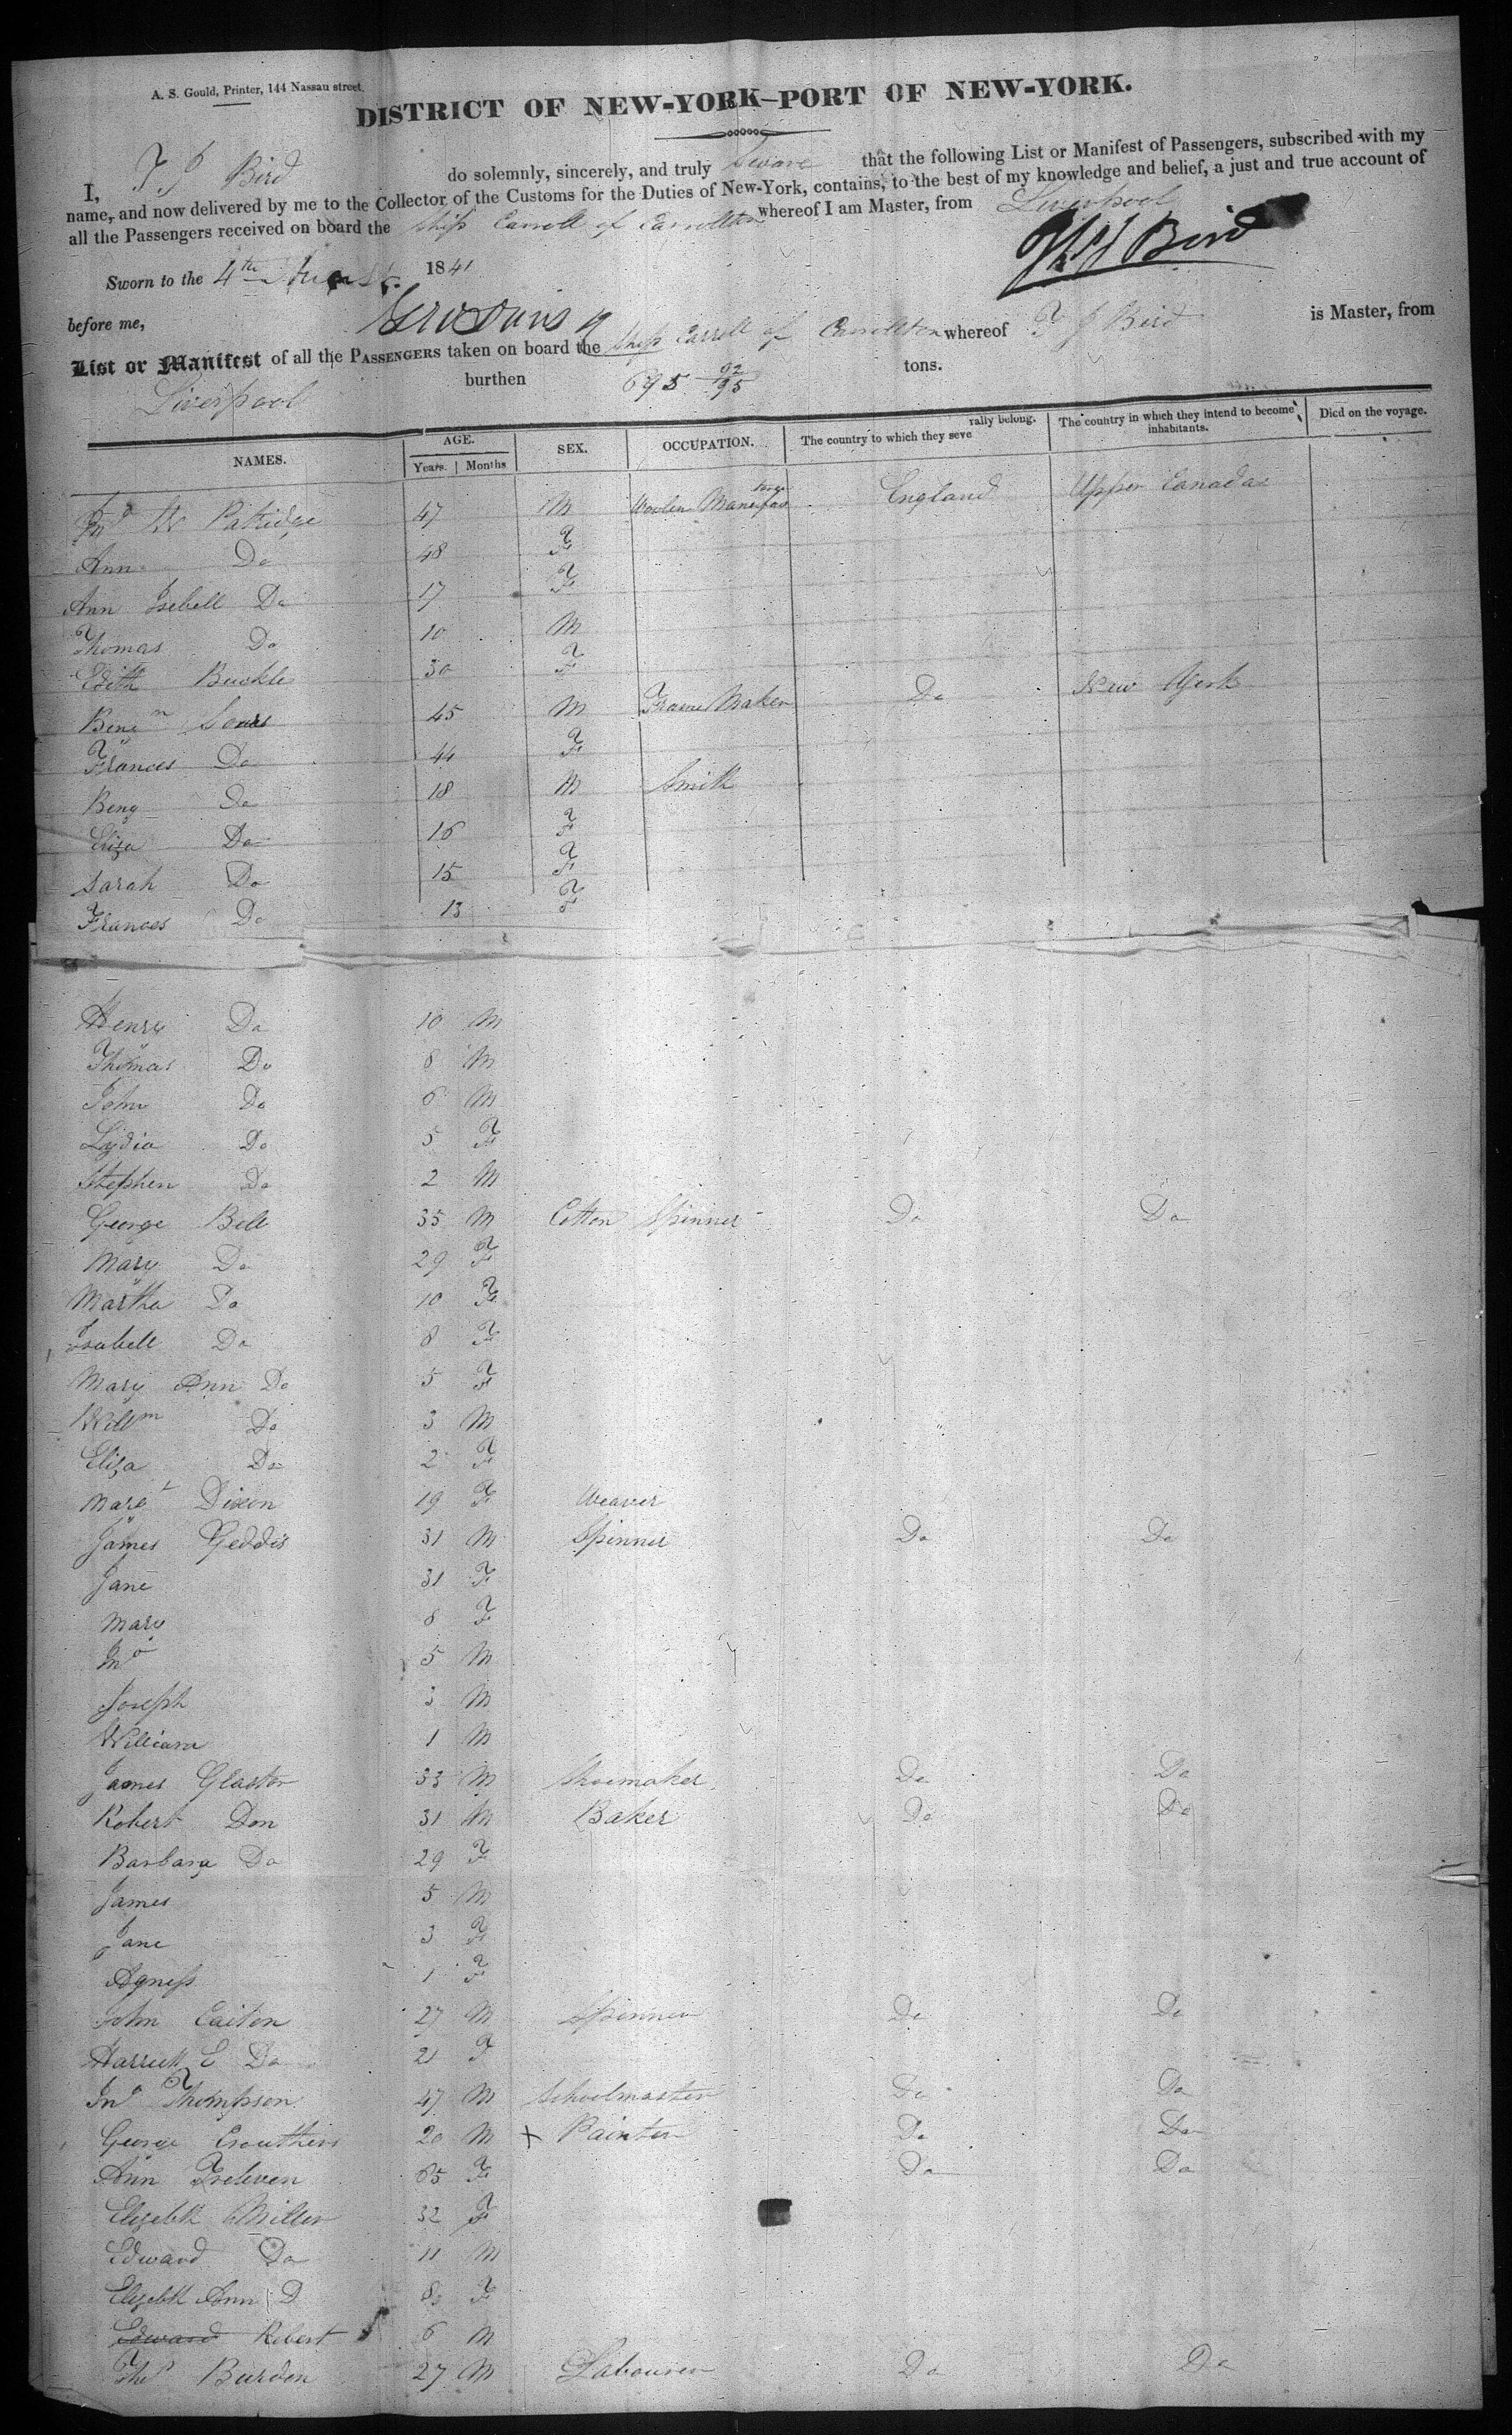 A. S. Gould, Printer, 144 Nassau street.
DISTRICT OF NEW-YORK—PORT OF NEW-YORK.
I, T J Bird do solemnly, sincerely, and truly Swear that the following List or Manifest of Passengers, subscribed with my
name, and now delivered by me to the Collector of the Customs for the Duties of New-York, contains, to the best of my knowledge and belief, a just and true account of
all the Passengers received on board the Ship Carroll of Carrollton whereof I am Master, from Liverpool
Sworn to the 4th 1841
Bird
before me,
List or Manifest of all the PASSENGERS taken on board the Ship Carroll of Carrollton whereof T J Bird is Master, from
Liverpool burthen 695 92/95 tons.
NAMES. AGE. Years. Months SEX. OCCUPATION. The country to which they severally belong. The country in which they intend to become inhabitants. Died on the voyage.
Jno W Patridge 47 M Woolen England Upper Canada
Ann Do 48 F
Ann Isebell Do 17 F
Thomas Do 10 M
Edith Buckle 30 F
Benjm 45 M Frame Maker Do New York
Frances Do 44 F
Benj Do 18 M Smith
Eliza Do 16 F
Sarah Do 15 F
Frances Do 13 F
Henry Do 10 M
Thomas Do 8 M
John Do 6 M
Lydia Do 5 F
Stephen Do 2 M
George Bell 35 M Cotton Spinner Do Do
Mary Do 29 F
Martha Do 10 F
Isabell Do 8 F
Mary Ann Do 5 F
Willm Do 3 M
Eliza Do 2 F
Margt Dixon 19 F Weaver
James Geddis 31 M Spinner Do Do
Jane 31 F
Mary 8 F
Jno 5 M
Joseph 3 M
William 1 M
James Glaster 33 M Shoemaker Do Do
Robert Don 31 M Baker Do Do
Barbara Do 29 F
James 5 M
Jane 3 F
Agness 1 F
John Caiton 27 M Spinner Do Do
Harriett E Do 21 F
Jno Thompson 47 M Schoolmaster Do Do
George Crouthers 20 M x Painter Do Do
Ann Treleven 65 F Do Do
Elizebth Miller 32 F
Edward Do 11 M
Elizebth Ann D 8 F
Edward Robert 6 M
Thos Burden 27 M Labourer Do Do